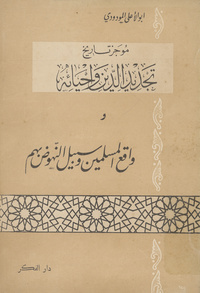 ابو الأعلى المودودي
موجز تاريخ
تجديد الدين وإحيائه
و
واقع المسلمين وسبيل النهوض بهم
دار الفكر